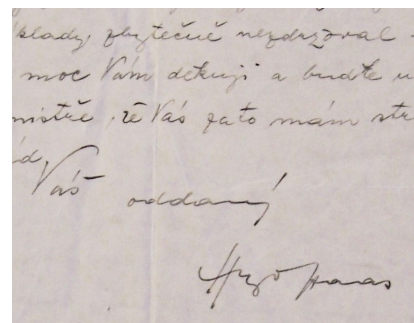 klady, zbytečně nezdržoval -
moc Vám děkuji a buďte u
mistře, že Vás za to mám str
d,
Váš
oddaný
Hugo Haas